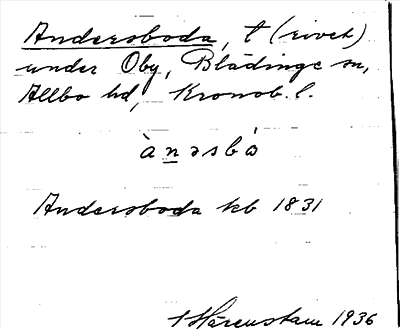 Andersboda, t (rivet)
under Oby, Blädinge sn,
Allbo hd, Kronob. l.
ànəsbó
Andersboda kb 1831
Härenstam 1936